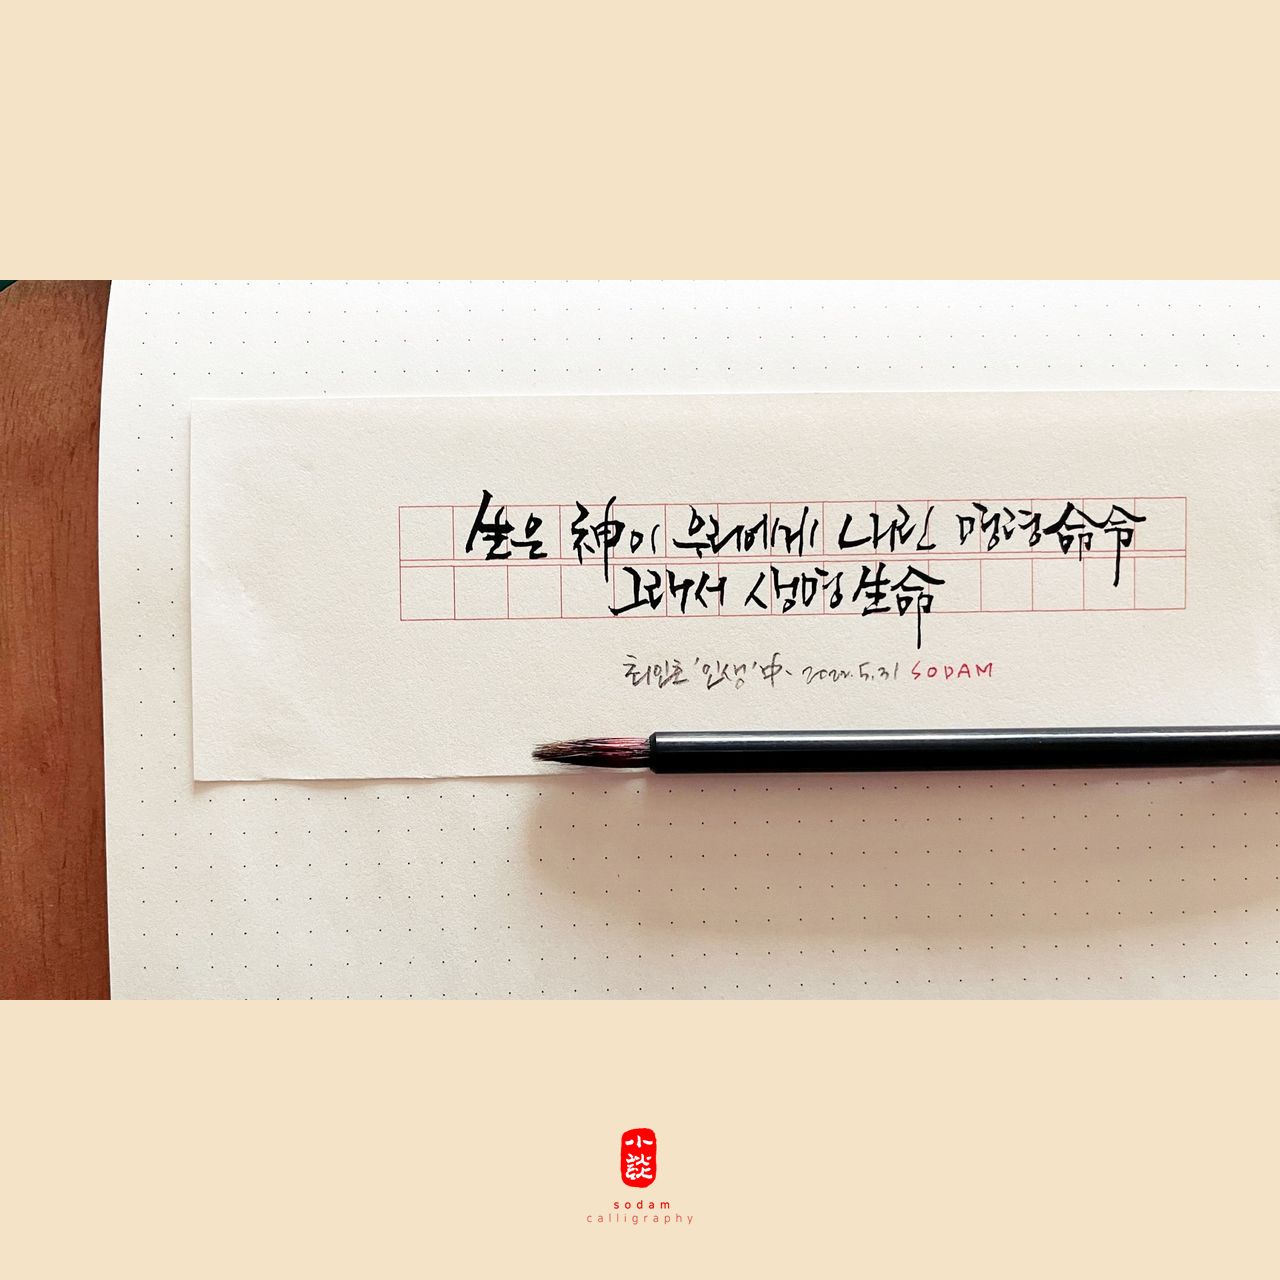 生은 神이 우리에게 내린 명령命令
그래서 생명生命
최인호 '인생' 中. 2022.5.31 SODAM
小談
sodam
calligraphy